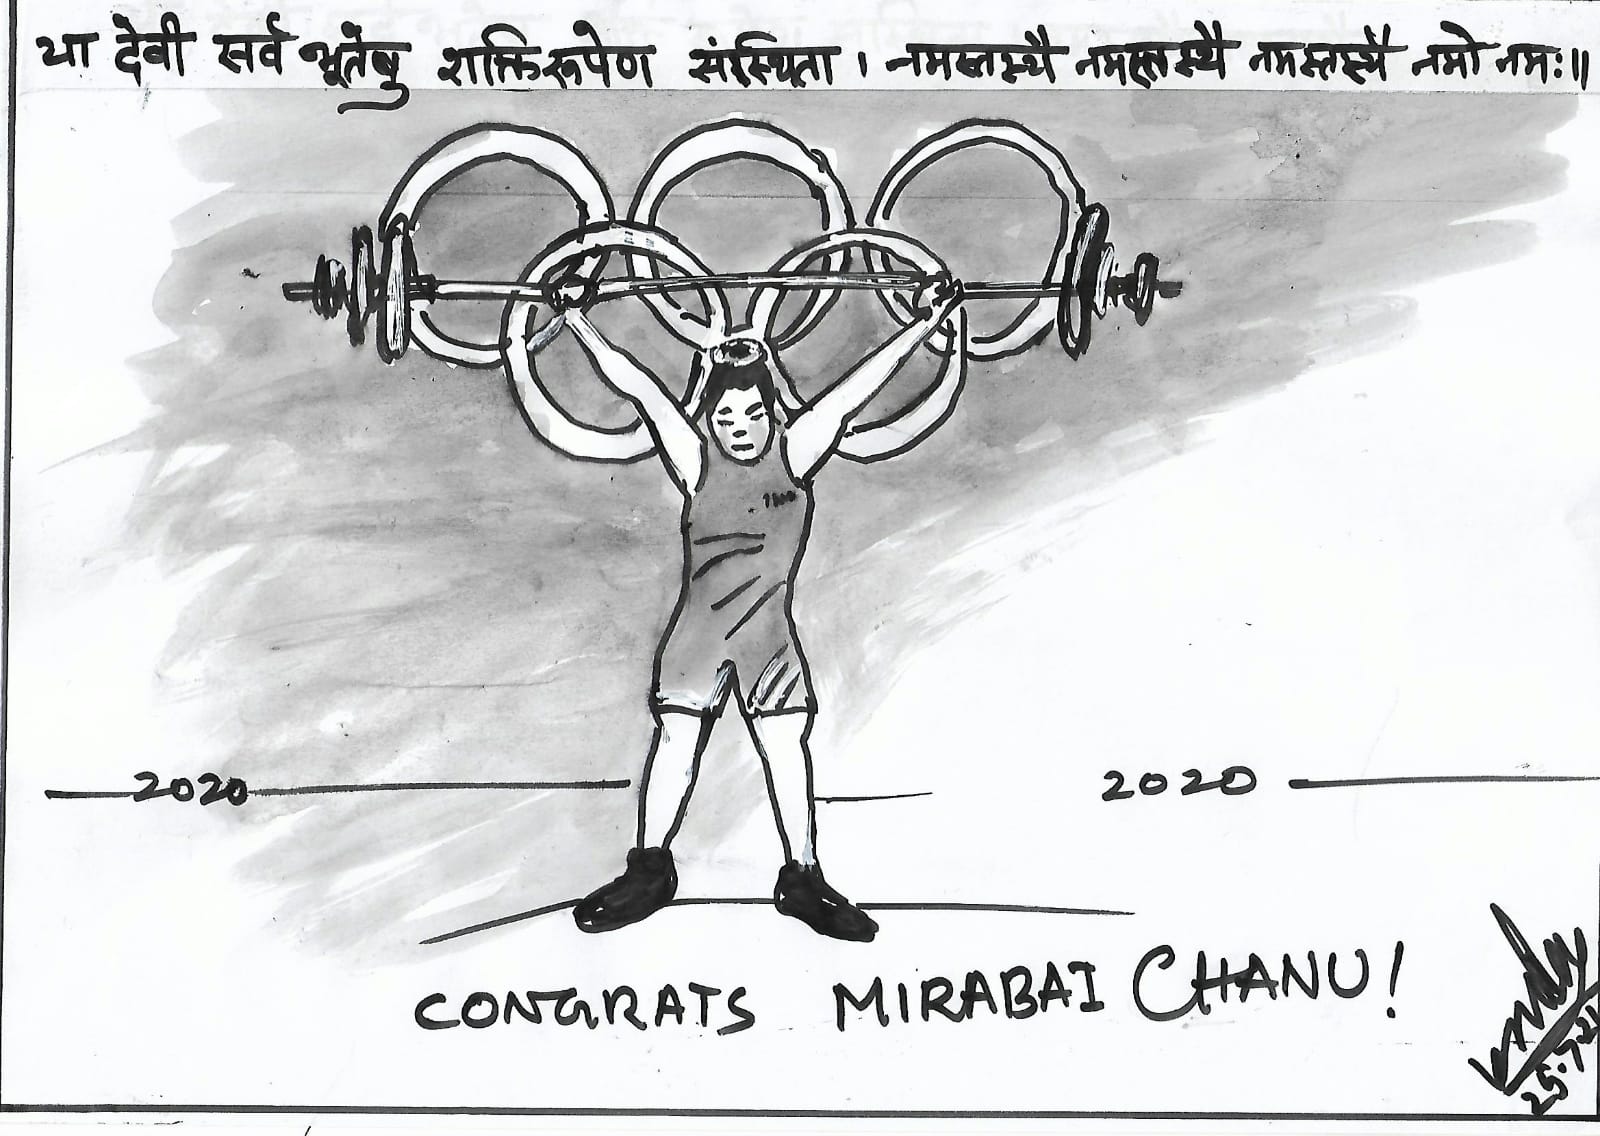 या देवी सर्व भूतेषु शक्तिरूपेण संस्थिता । नमस्तस्यै नमस्तस्यै नमस्तस्यै नमो नमः॥
2020 2020
CONGRATS MIRABAI CHANU!
25.7.21